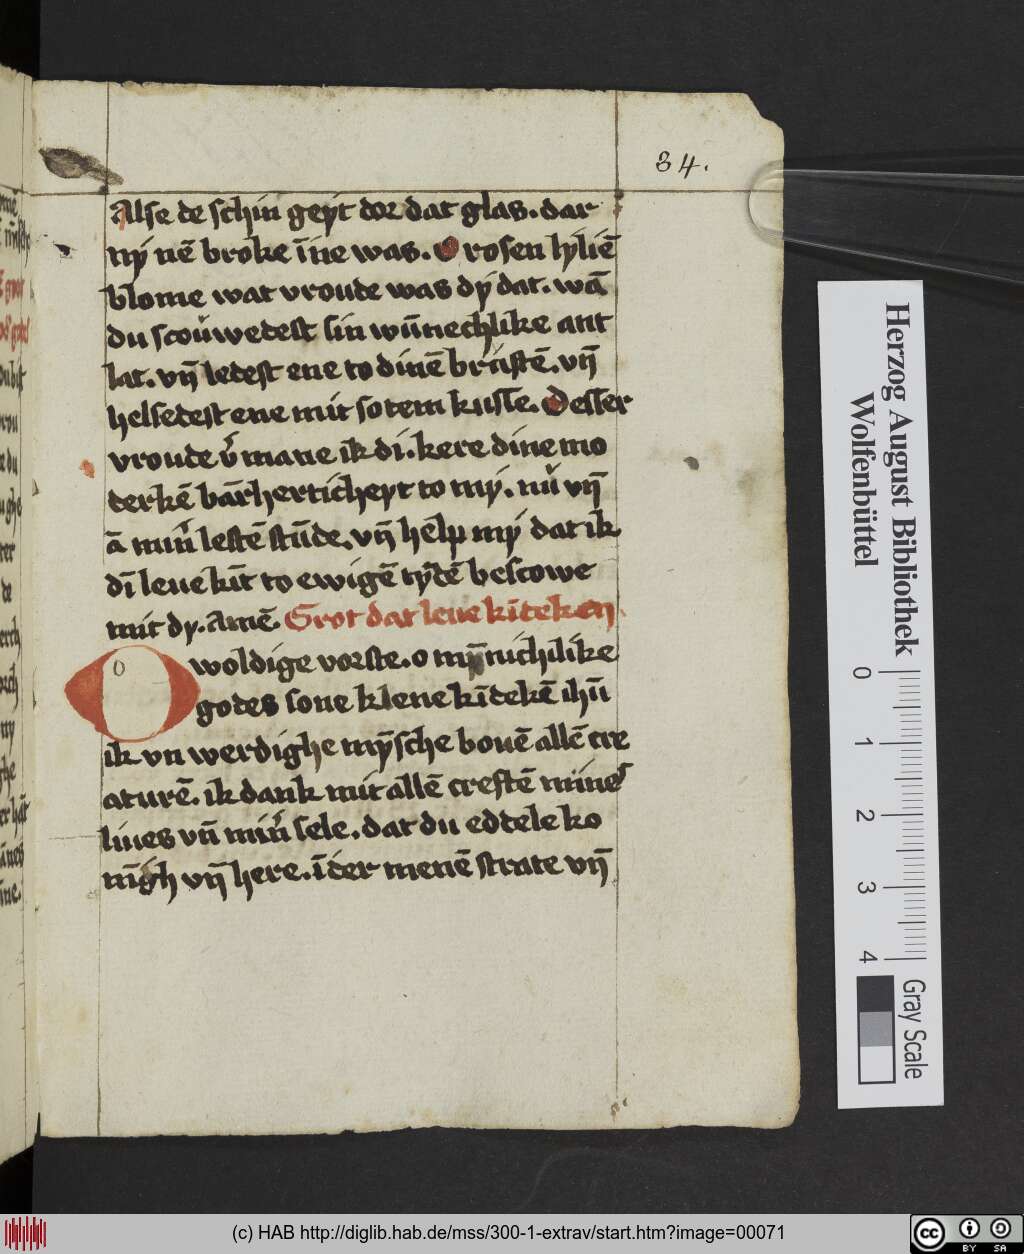 34.
Alse de schin geyt dor dat glas. dar
ny nē broke īne was. O rosen lyliē
blome wat vroude was dy dat. wā
du scouwedest sin wūnechlike ant
lat. vn̄ ledest ene to dinē brüstē. vn̄
helsedest ene mit sotem kusse. Desser
vroude v̓mane ik di. kere dine mo
derkē bārherticheyt to my. nu vn̄
ā min̓ lestē stūde. vn̄ help my dat ik
dī leue kīt to ewigē tydē bescowe
mit dy. Amē. Grot dat leue kīdeken.
O woldige vorste. o mȳnichlike
godes sone klene kīdekē ihū
ik vn werdighe mȳsche bouē allē cre
aturē. ik dank mit allē creftē mines
liues vn̄ min̓ sele. dat du eddele ko
nīgh vn̄ here. ī der menē strate vn̄
Herzog August Bibliothek
Wolfenbüttel
0 1 2 3 4
Gray Scale
(c) HAB http://diglib.hab.de/mss/300-1-extrav/start.htm?image=00071
cc BY SA